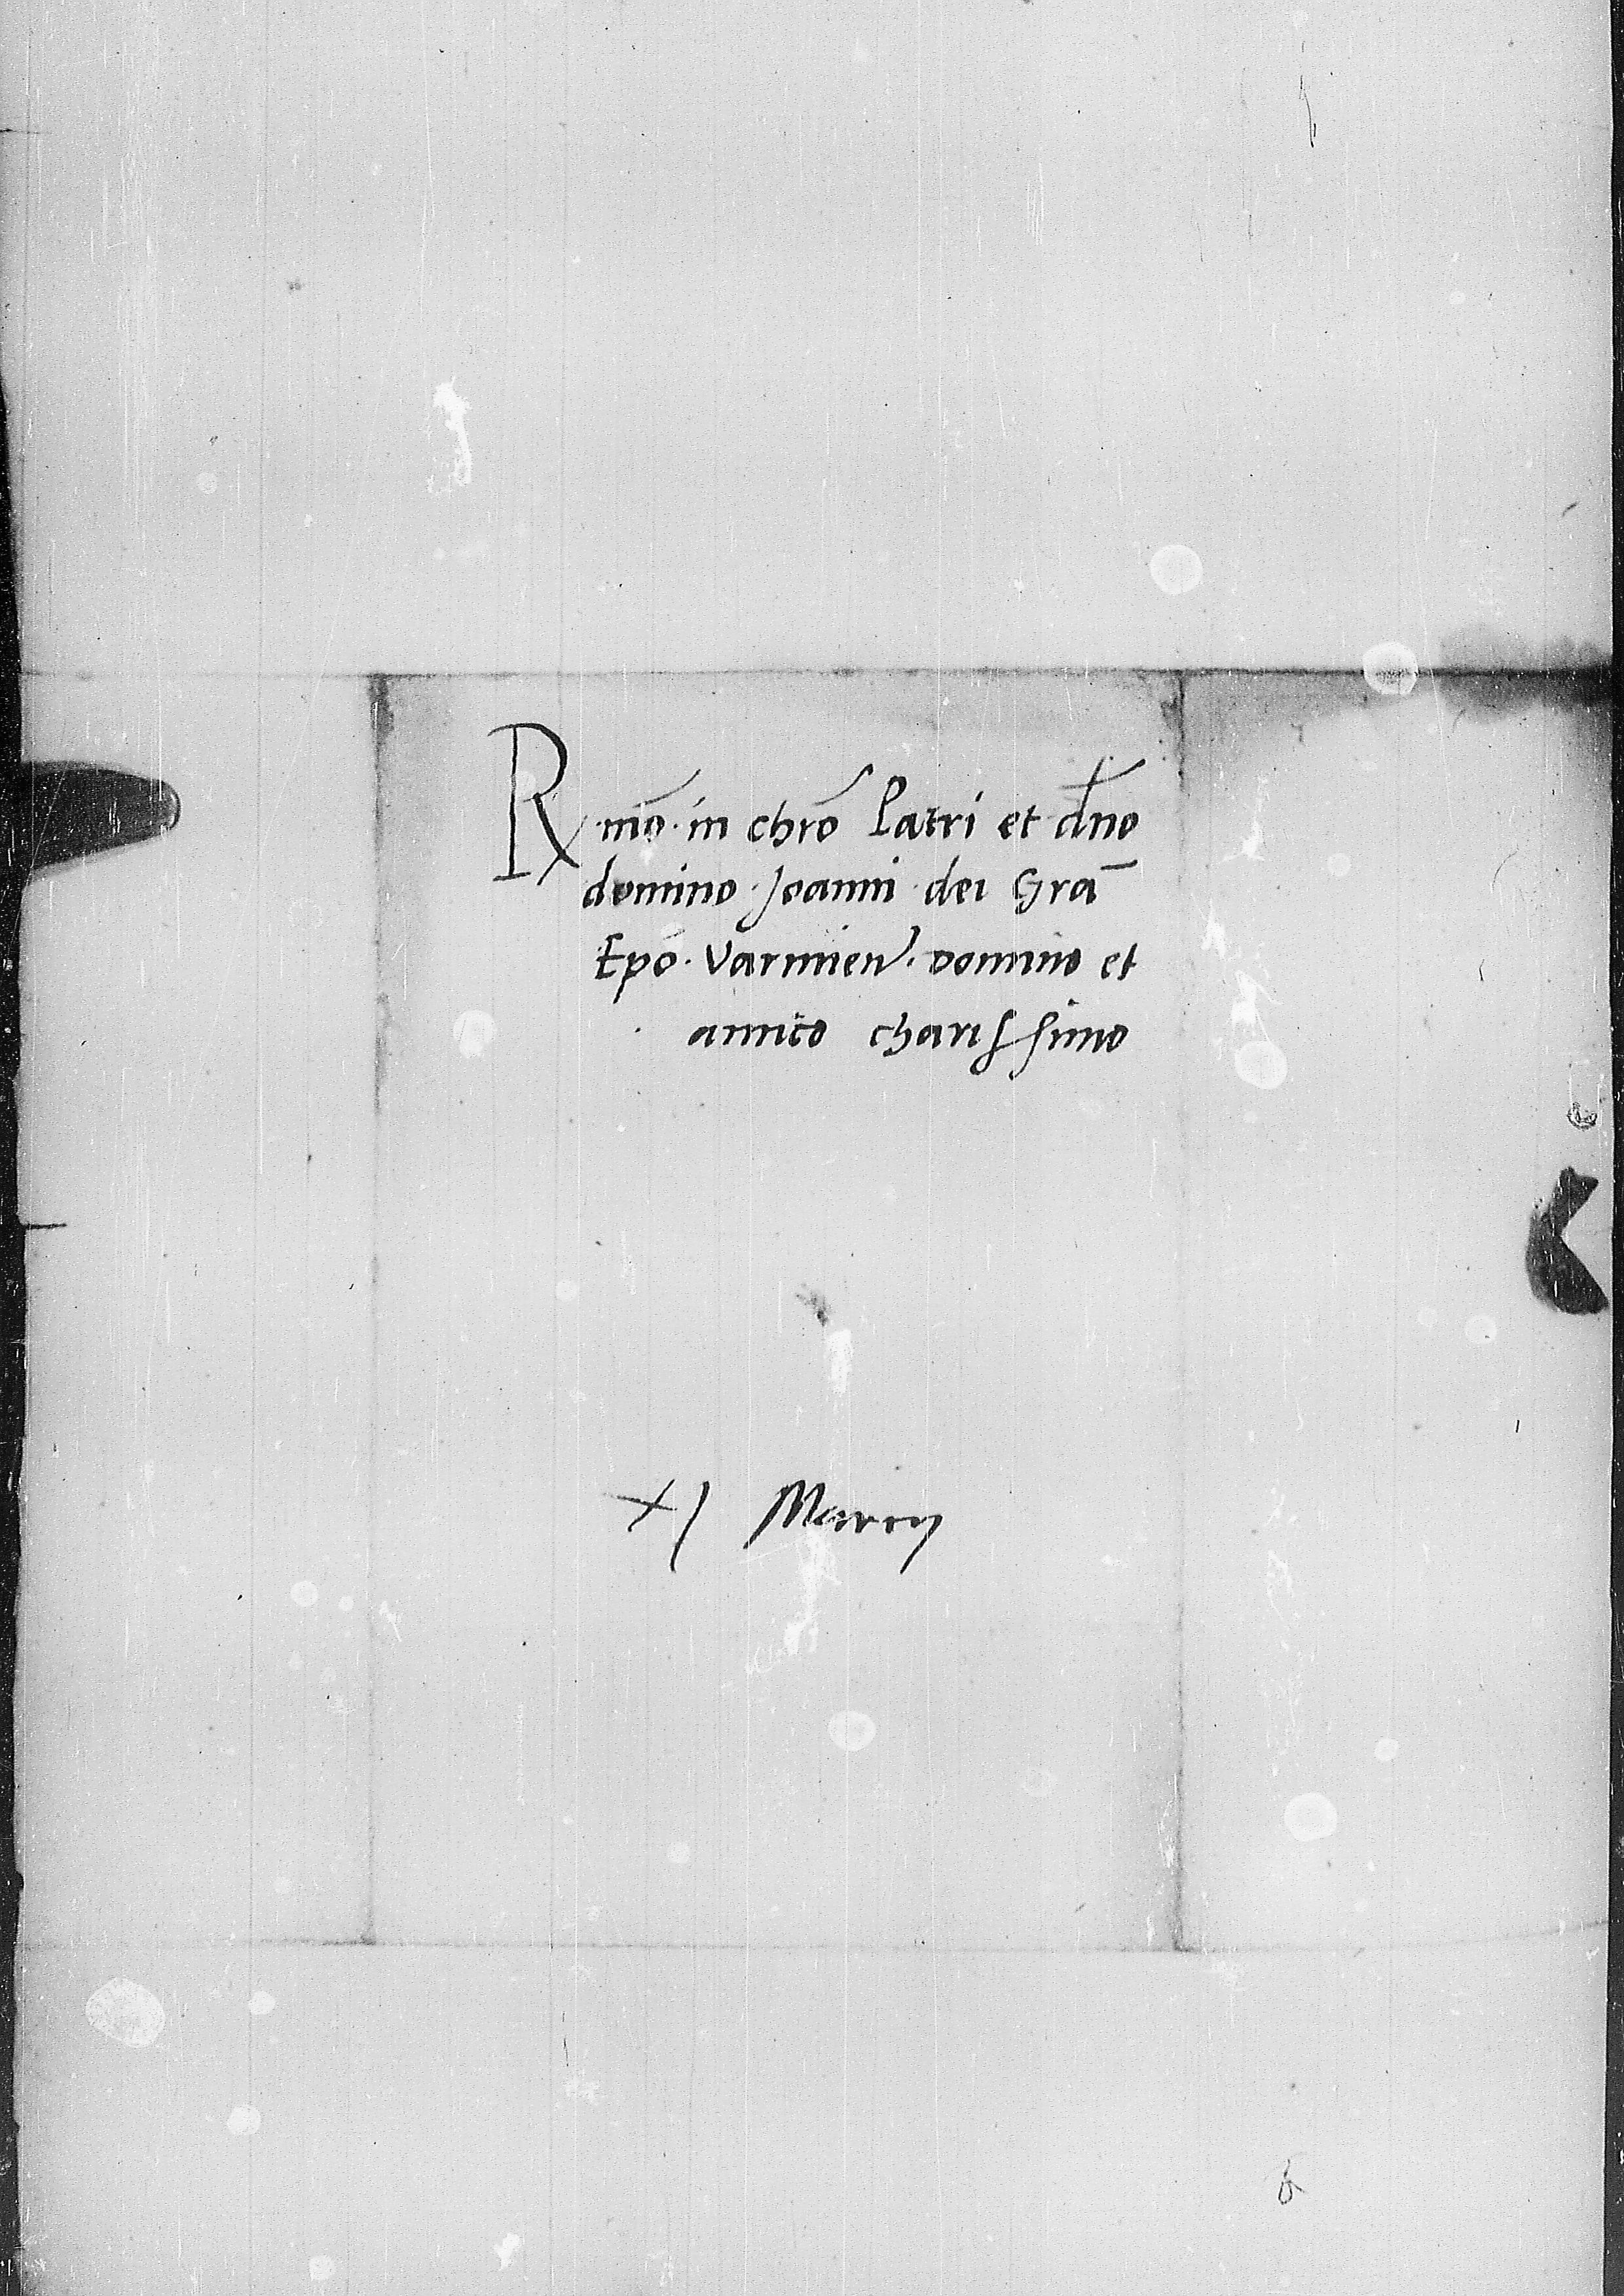 R.mo. in chro Patri et dno
domino Joanni dei Gra
Epo. Varmien. Domino et
amico charissimo
XI Marcy